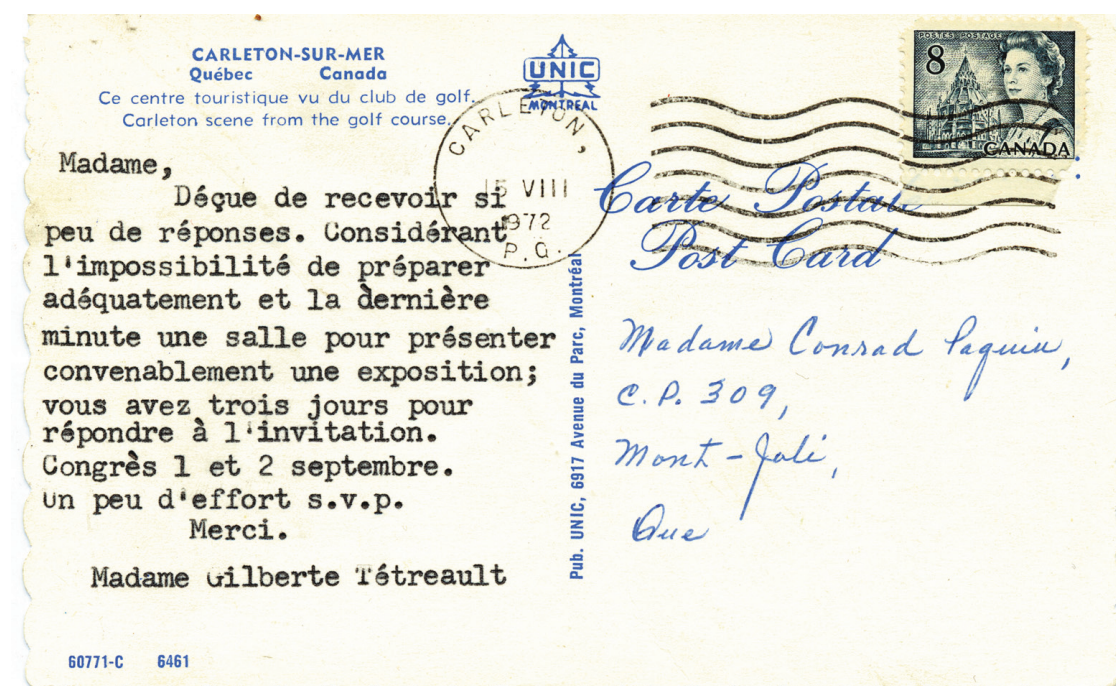 CARLETON-SUR-MER
Québec Canada
Ce centre touristique vu du club de golf.
Carleton scene from the golf course.
UNIC
MONTREAL
CARLETON,
15 VIII
1972
P.Q.
POSTES POSTAGE
8
CANADA
Carte Postale
Post Card
Madame,
Déçue de recevoir si
peu de réponses. Considérant
l'impossibilité de préparer
adéquatement et la dernière
minute une salle pour présenter
convenablement une exposition;
vous avez trois jours pour
répondre à l'invitation.
Congrès 1 et 2 septembre.
Un peu d'effort s.v.p.
Merci.
Madame Gilberte Tétreault
Pub. UNIC, 6917 Avenue du Parc, Montréal
Madame Conrad Paquin,
C.P. 309,
Mont-Joli,
Que
60771-C 6461